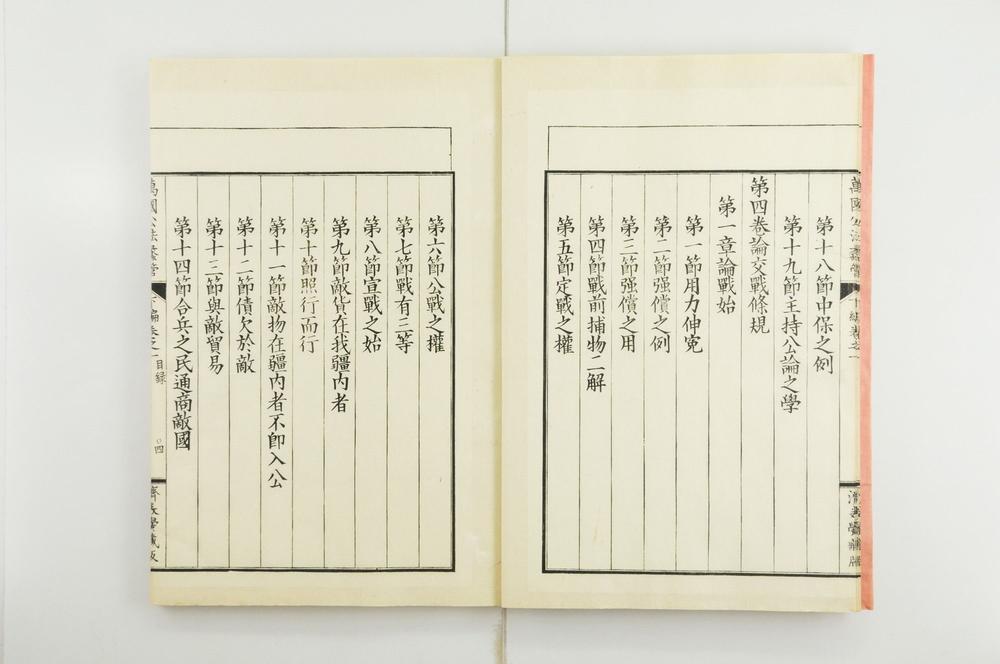 第十八節中保之例
第十九節主持公論之學
第四卷論交戰條規
第一章論戰始
第一節用力伸冤
第二節强償之例
第三節强償之用
第四節戰前捕物二解
第五節定戰之權
第六節公戰之權
第七節戰有三等
第八節宣戰之始
第九節敵貨在我疆內者
第十節照行而行
第十一節敵物在疆內者不卽入公
第十二節債欠於敵
第十三節與敵貿易
第十四節合兵之民通商敵國
目錄
四